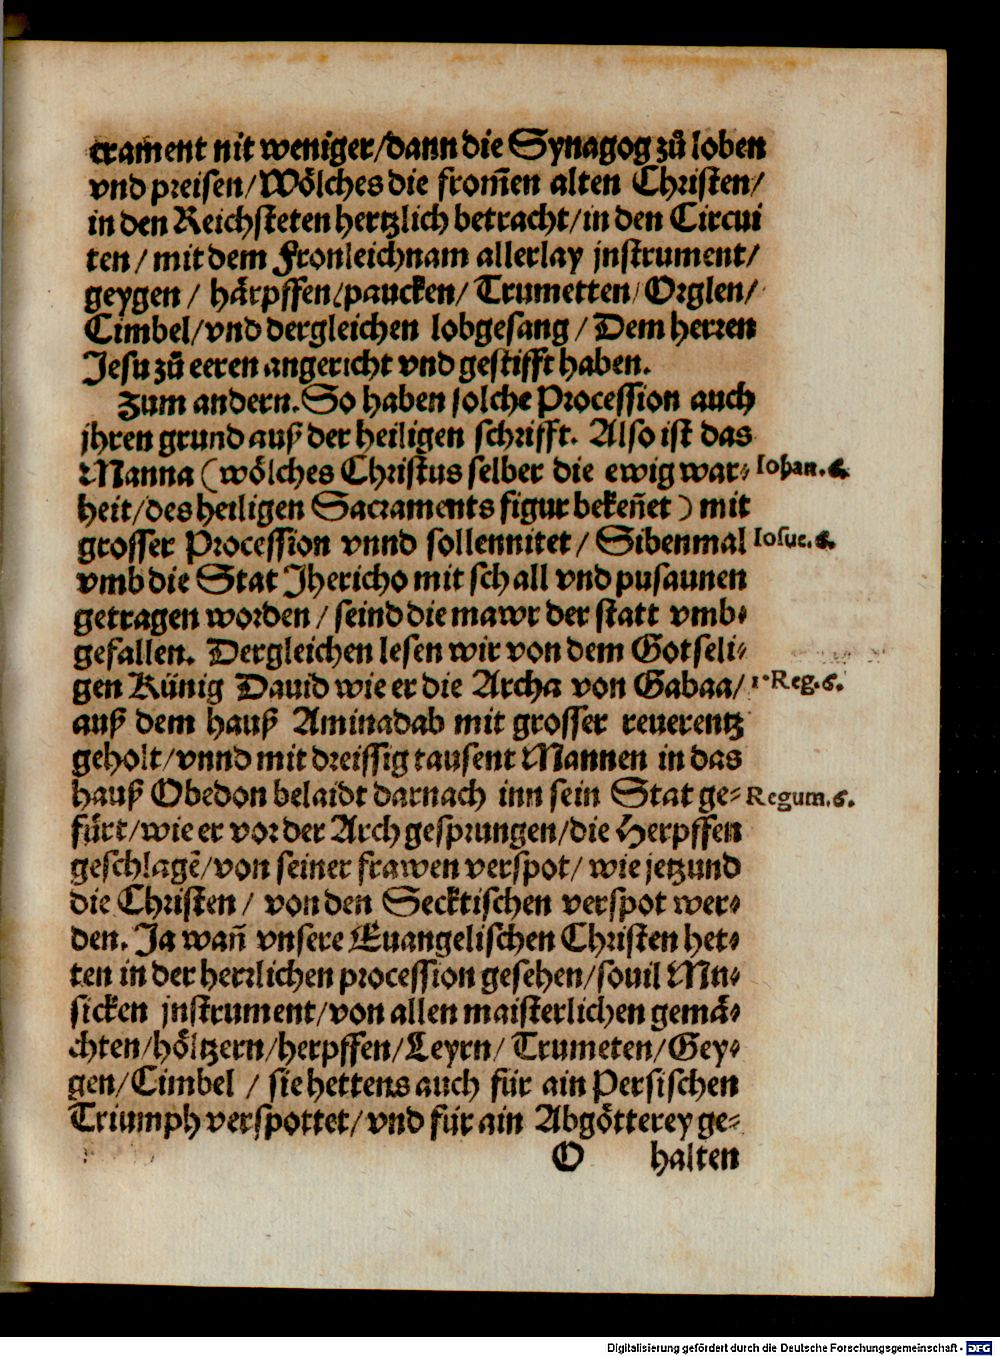 crament nit weniger/dann die Synagog zů loben
vnd preisen/Wölches die from̃en alten Christen/
in den Reichsteten hertzlich betracht/in den Circui
ten/ mit dem Fronleichnam allerlay jnstrument/
geygen/ härpffen/paucken/ Trumetten/ Orglen/
Cimbel/vnd dergleichen lobgesang/ Dem herren
Jesu zů eeren angericht vnd gestifft haben.
Zum andern. So haben solche Procession auch
jhren grund auß der heiligen schrifft. Also ist das
Manna (wölches Christus selber die ewig war⸗ Iohan. 6.
heit/des heiligen Sacraments figur bekeñet) mit
grosser Procession vnnd sollennitet/ Sibenmal Iosue. 6.
vmb die Stat Jhericho mit schall vnd pusaunen
getragen worden/ seind die mawr der statt vmb⸗
gefallen. Dergleichen lesen wir von dem Gotseli⸗
gen Künig Dauid wie er die Archa von Gabaa/ 1. Reg. 6.
auß dem hauß Aminadab mit grosser reuerentz
geholt/vnnd mit dreissig tausent Mannen in das
hauß Obedon belaidt darnach inn sein Stat ge⸗ Regum. 6.
fürt/wie er vor der Arch gesprungen/die Herpffen
geschlagẽ/von seiner frawen verspot/ wie jetzund
die Christen/ von den Secktischen verspot wer⸗
den. Ja wañ vnsere Euangelischen Christen het⸗
ten in der herrlichen procession gesehen/souil Mu⸗
sicken jnstrument/von allen maisterlichen gemä⸗
chten/höltzern/herpffen/Leyrn/ Trumeten/Gey⸗
gen/Cimbel / sie hettens auch für ain Persischen
Triumph verspottet/ vnd für ain Abgötterey ge⸗
O halten
Digitalisierung gefördert durch die Deutsche Forschungsgemeinschaft - DFG